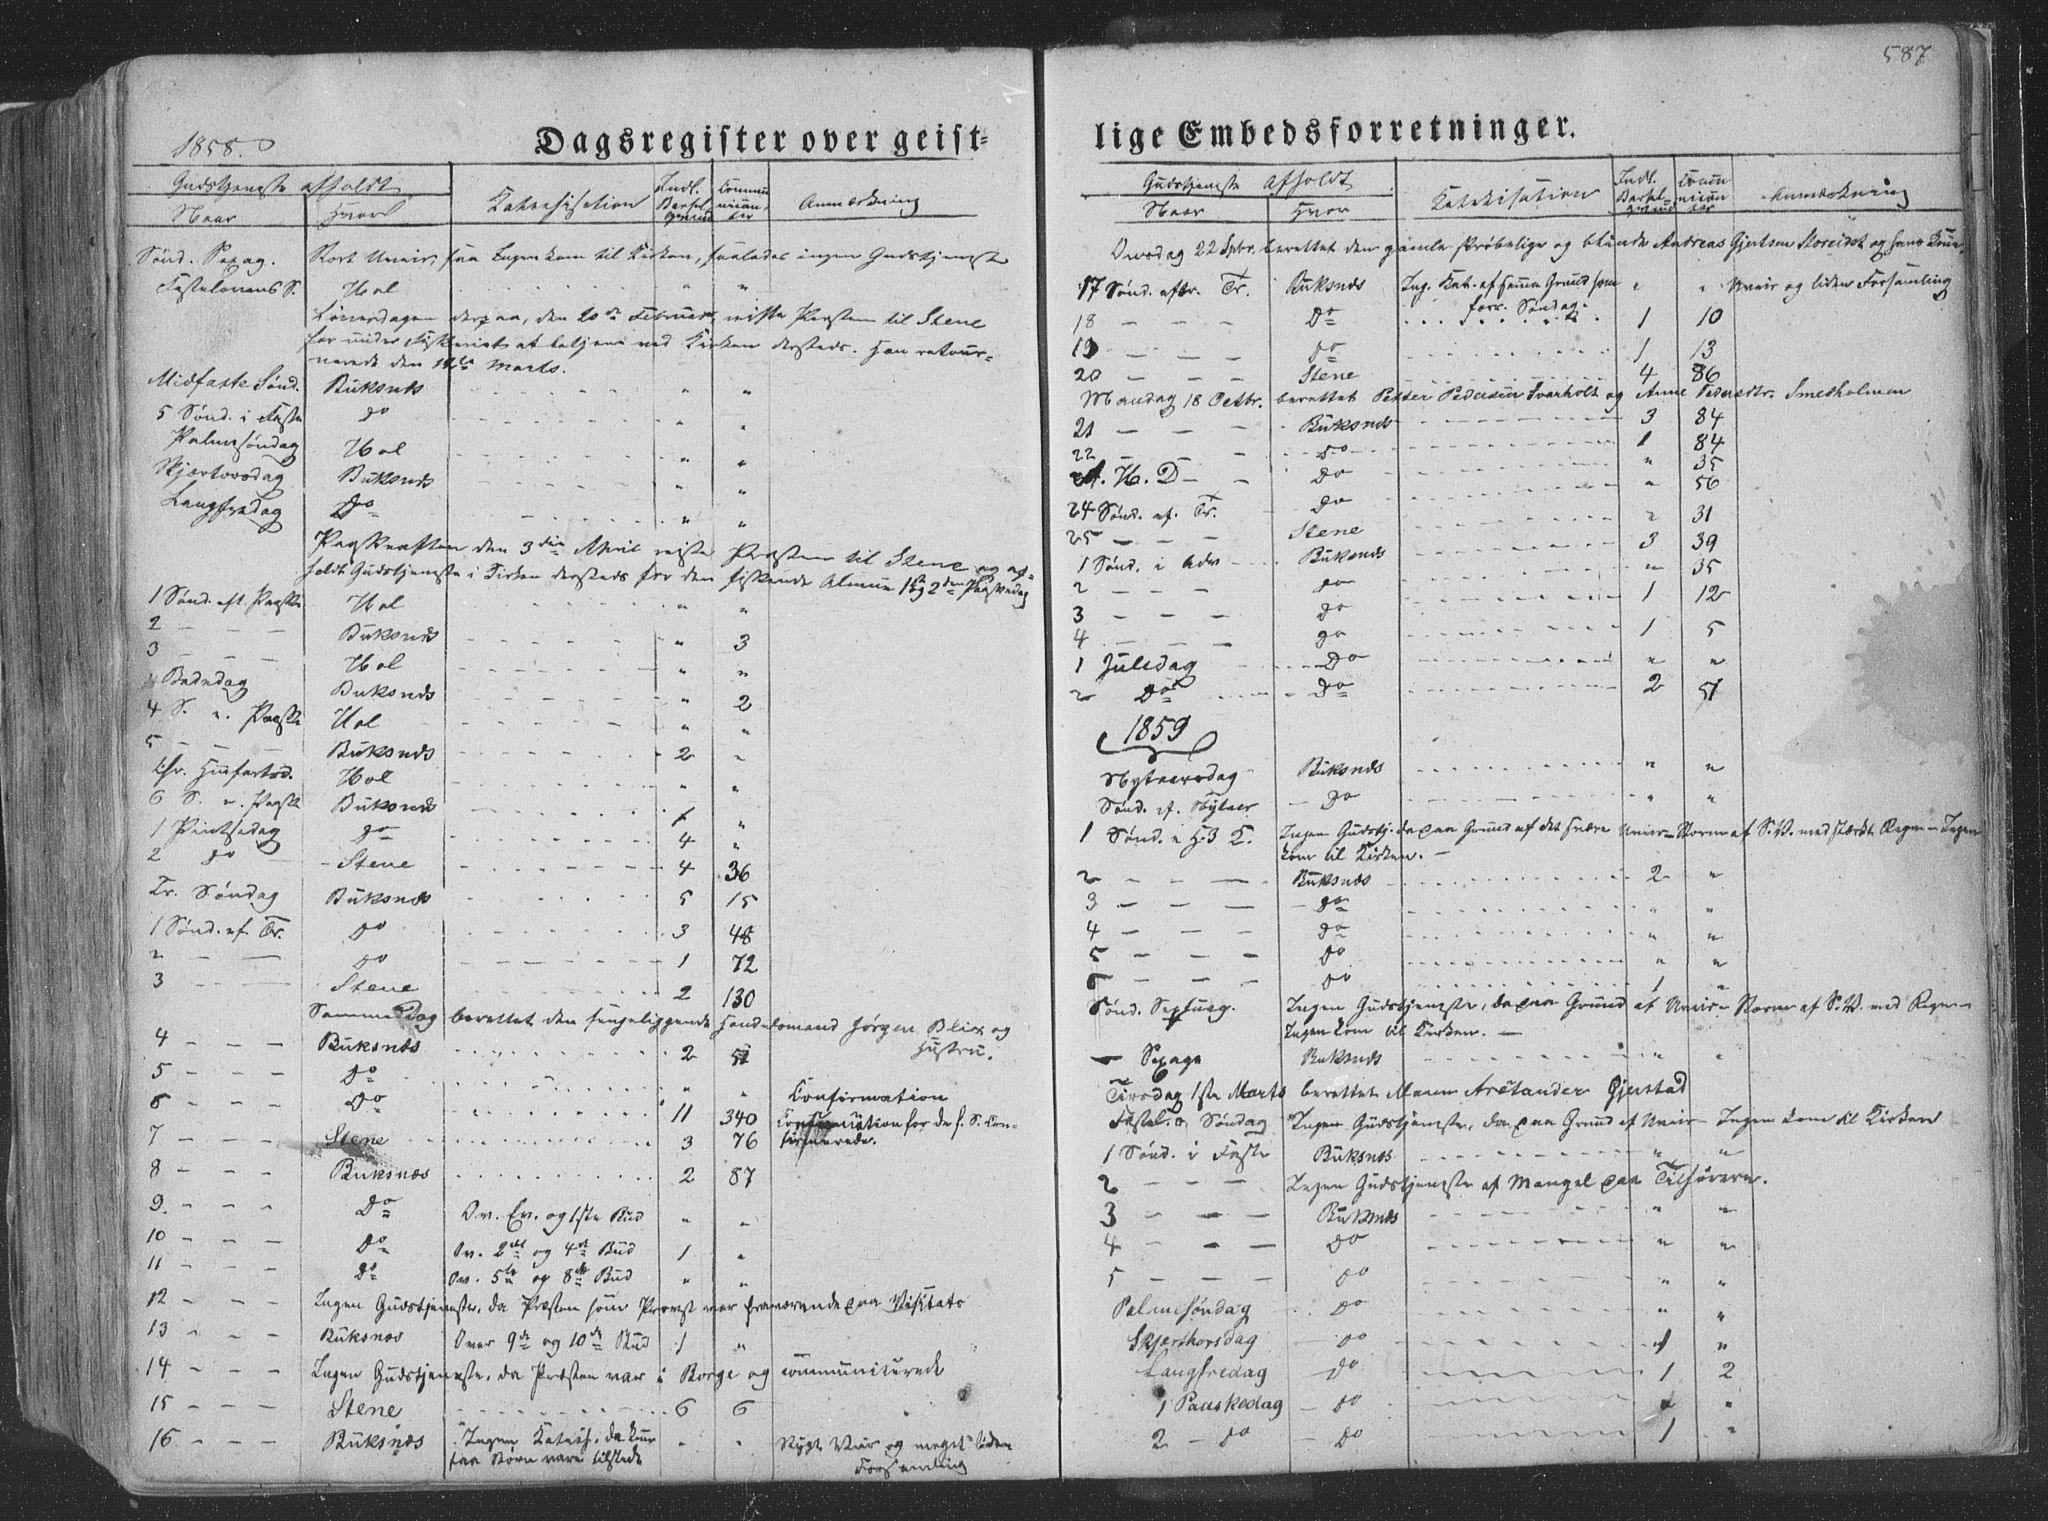 587
1858.
Dagsregister over geist-
lige Embedsforretninger.
Gudstjeneste afholdt
Naar Hvor Katechisation Indl. Barselqvind Communicanter Anmærkning
Sønd. Sexag. Stort Uveir, faa Ingen kom til Kirken, saaledes ingen Gudstjeneste
Fastelavens S. Hol " "
Løverdagen derpaa, den 20de Februar reiste Præsten til Stene
for under Fiskeriet at betjene ved Kirken dersteds. Han retour-
nerede den Marts.
Midfaste Sønd. Buksnæs " "
5 Sønd. i Faste do " "
Palmesøndag Hol " "
Skjærtorsdag Buksnæs " "
Langfredag Do " "
Paaskeaften den 3die April reiste Præsten til Stene og af-
holdt Gudstjeneste i Kirken dersteds for den fiskende Almue 1ste og 2den Paaskedag
1 Sønd. eft. Paaske Hol " "
2 — — Buksnæs " 3
3 — — Hol " "
Bededag Buksnæs " 2
4 S. e. Paaske Hol " "
5 — — Buksnæs 2 "
Chr. Himfartsd. Hol " "
6 S. e. Paaske Buksnæs 1 "
1 Pintsedag do 4 "
2 do Stene 4 36
Tr. Søndag Buksnæs 5 15
1 Sønd. ef. Tr. do 3 48
2 — — do 1 72
3 — — Stene 2 130
Samme Dag berettet den sengeliggende Handelsmand Jørgen Blix og
Hustru.
4 — — Buksnæs 2 51
5 — — Do " " Confirmation
6 — — Do 11 340 Confirmation for de f. S. Con-
firmerede.
7 — — Stene 3 76
8 — — Buksnæs 2 87
9 — — Do Ov. Ev. og 1ste Bud " "
10 — — Do Ov. 2det og 4de Bud 1 "
11 — — Do Ov. 5te og 8de Bud " "
12 — — Ingen Gudstjeneste, da Præsten som Provst var fraværende paa Visitats
13 — — Buksnæs Over 9de og 10de Bud 1 "
14 — — Ingen Gudstjeneste, da Præsten var i Borge og communicerede
15 — — Stene 6 6
16 — — Buksnæs Ingen Katech. da kun " " Stygt Veir og meget liden
faa Børn vare tilstede Forsamling
Gudstjeneste afholdt
Naar Hvor Katekisation Indl. Barselqvind Communicanter Anmærkning
Onsdag 22 Spbr. berettet den gamle skrøbelige og blinde Andreas Gjertsen Storeidet og hans Kone
17 Sønd. eftr. Tr. Buksnæs Ing. Kat. af samme Grund som " " Uveir og liden Forsamling
forr. Søndag.
18 — — Do 1 10
19 — — do 1 13
20 — — Stene 4 86
Mandag 18 Octbr. berettet Petter Pedersen Svarholt og Anne Pedersdtr. Smedholmen
21 — — Buksnæs 3 84
22 — — do 1 84
A. H. D — — do " 35
do " 56
24 Sønd. ef. Tr. do " 31
25 — — Stene 3 39
1 Sønd. i Adv Buksnæs " 35
2 — — do 1 12
3 — — do
4 — — do 1 5
1 Juledag Do " "
2 Do Do 2 51
1859
Nytaarsdag Buksnæs " "
Sønd. ef. Nytaar Do " "
1 Sønd. e H. 3 K. Ingen Gudstj. da paa Grund af det svære Uveir - Storm af S.V. med stærkt Regn - Ingen
kom til Kirken. —
2 — — Buksnæs 2 "
3 — — Do " "
4 — — Do " "
5 — — do " "
6 — — do 1 "
Sønd. Septuag. Ingen Gudstjeneste, da paa Grund af Uveir - Storm af S.V. med Regn -
Ingen kom til Kirken. —
— Sexage Buksnæs " "
Tirsdag 1ste Marts berettet Maren Gjerstad
Fastel. Søndag Ingen Gudstjeneste, da paa Grund af Uveir - Ingen kom til Kirken
1 Sønd. i Faste Buksnæs " "
2 — — Ingen Gudstjeneste af Mangel paa Tilhørere.
3 — — Buksnæs " "
4 — — do " "
5 — — do " "
Palmesøndag do " "
Skjærthorsdag do 1 "
Langfredag do 1 2
1 Paaskedag do "
2 — do do 1 "